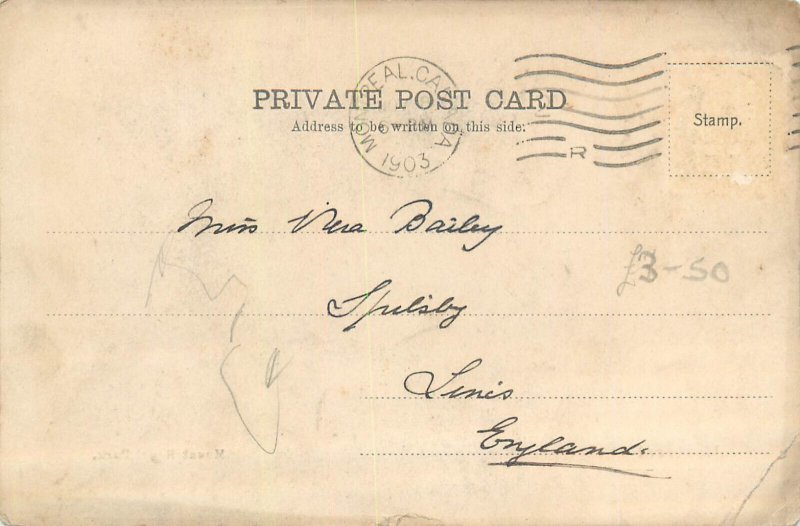 MONTREAL. CANADA
1903
R
PRIVATE POST CARD
Address to be written on this side.
Stamp.
Miss Vera Bailey
£3-50
Spilsby
Lincs
England.